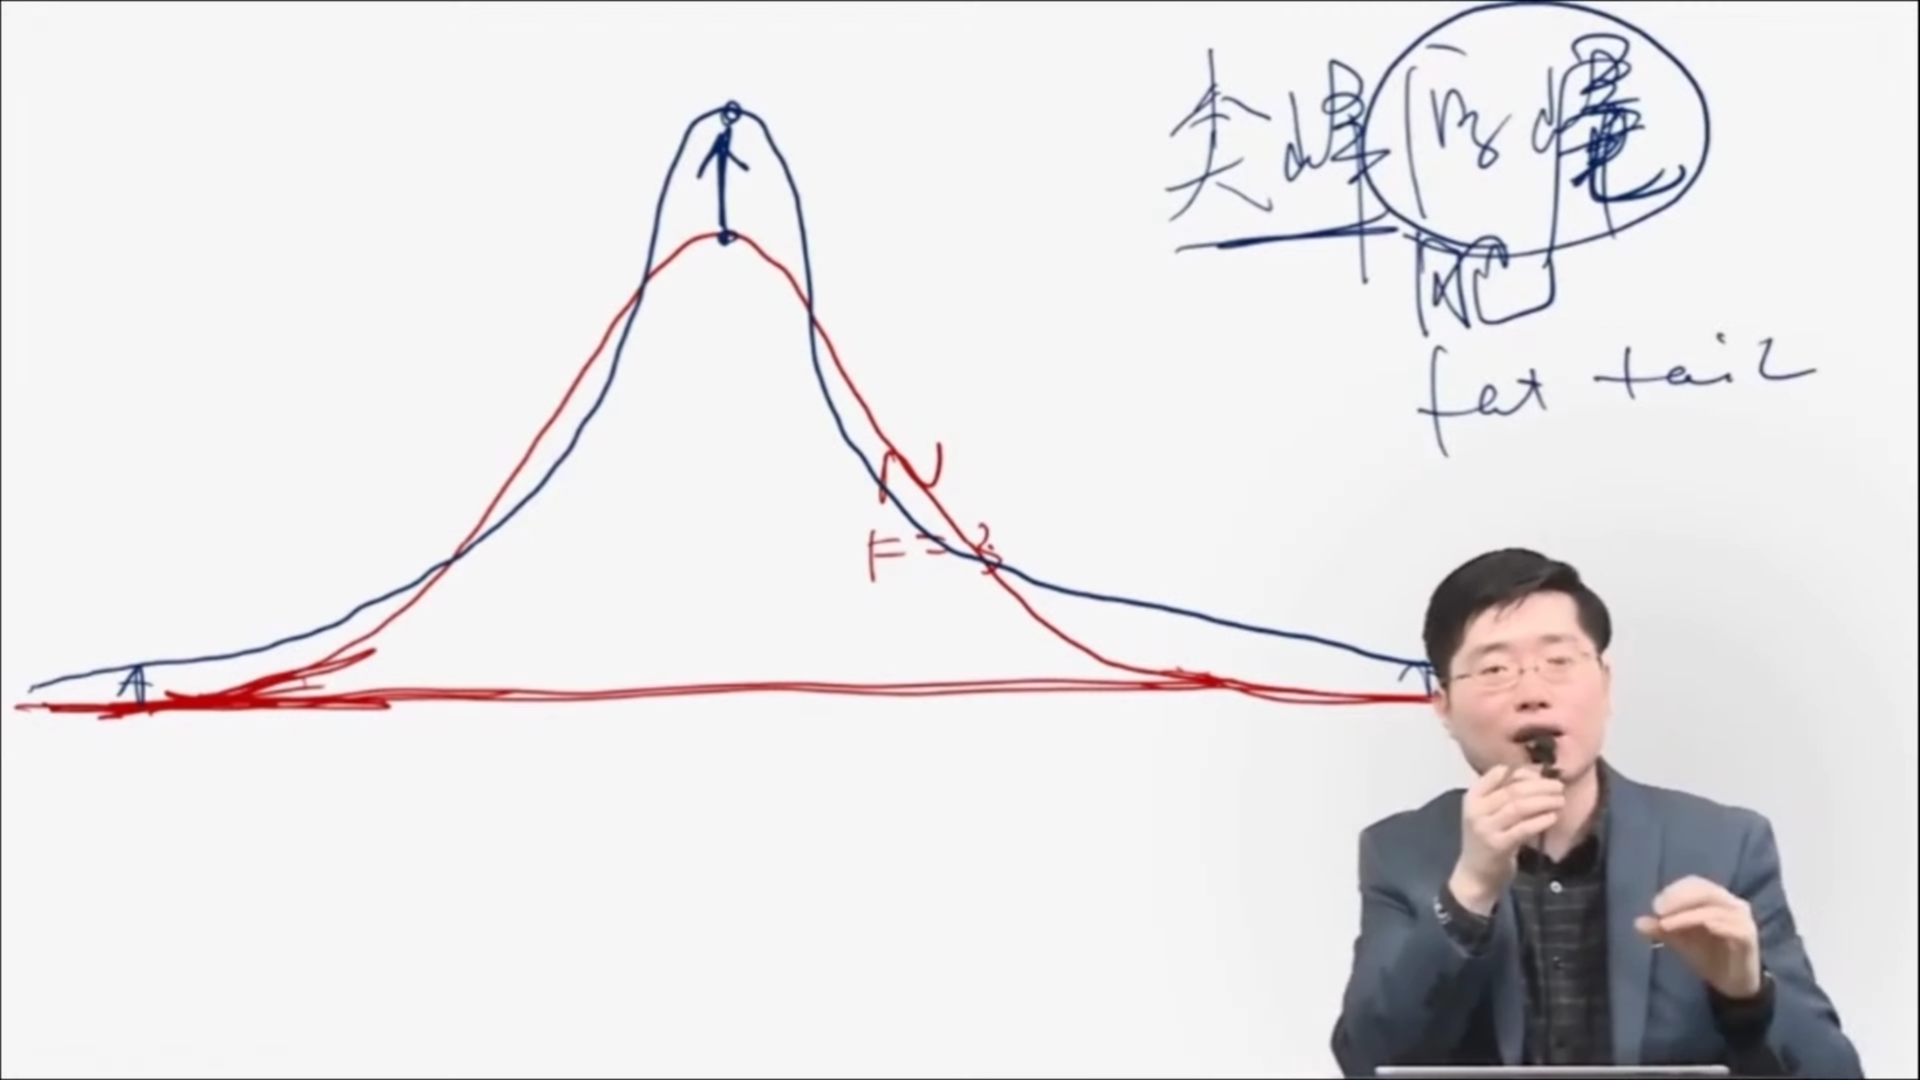 尖峰厚尾
肥
fat tail
N
F=3